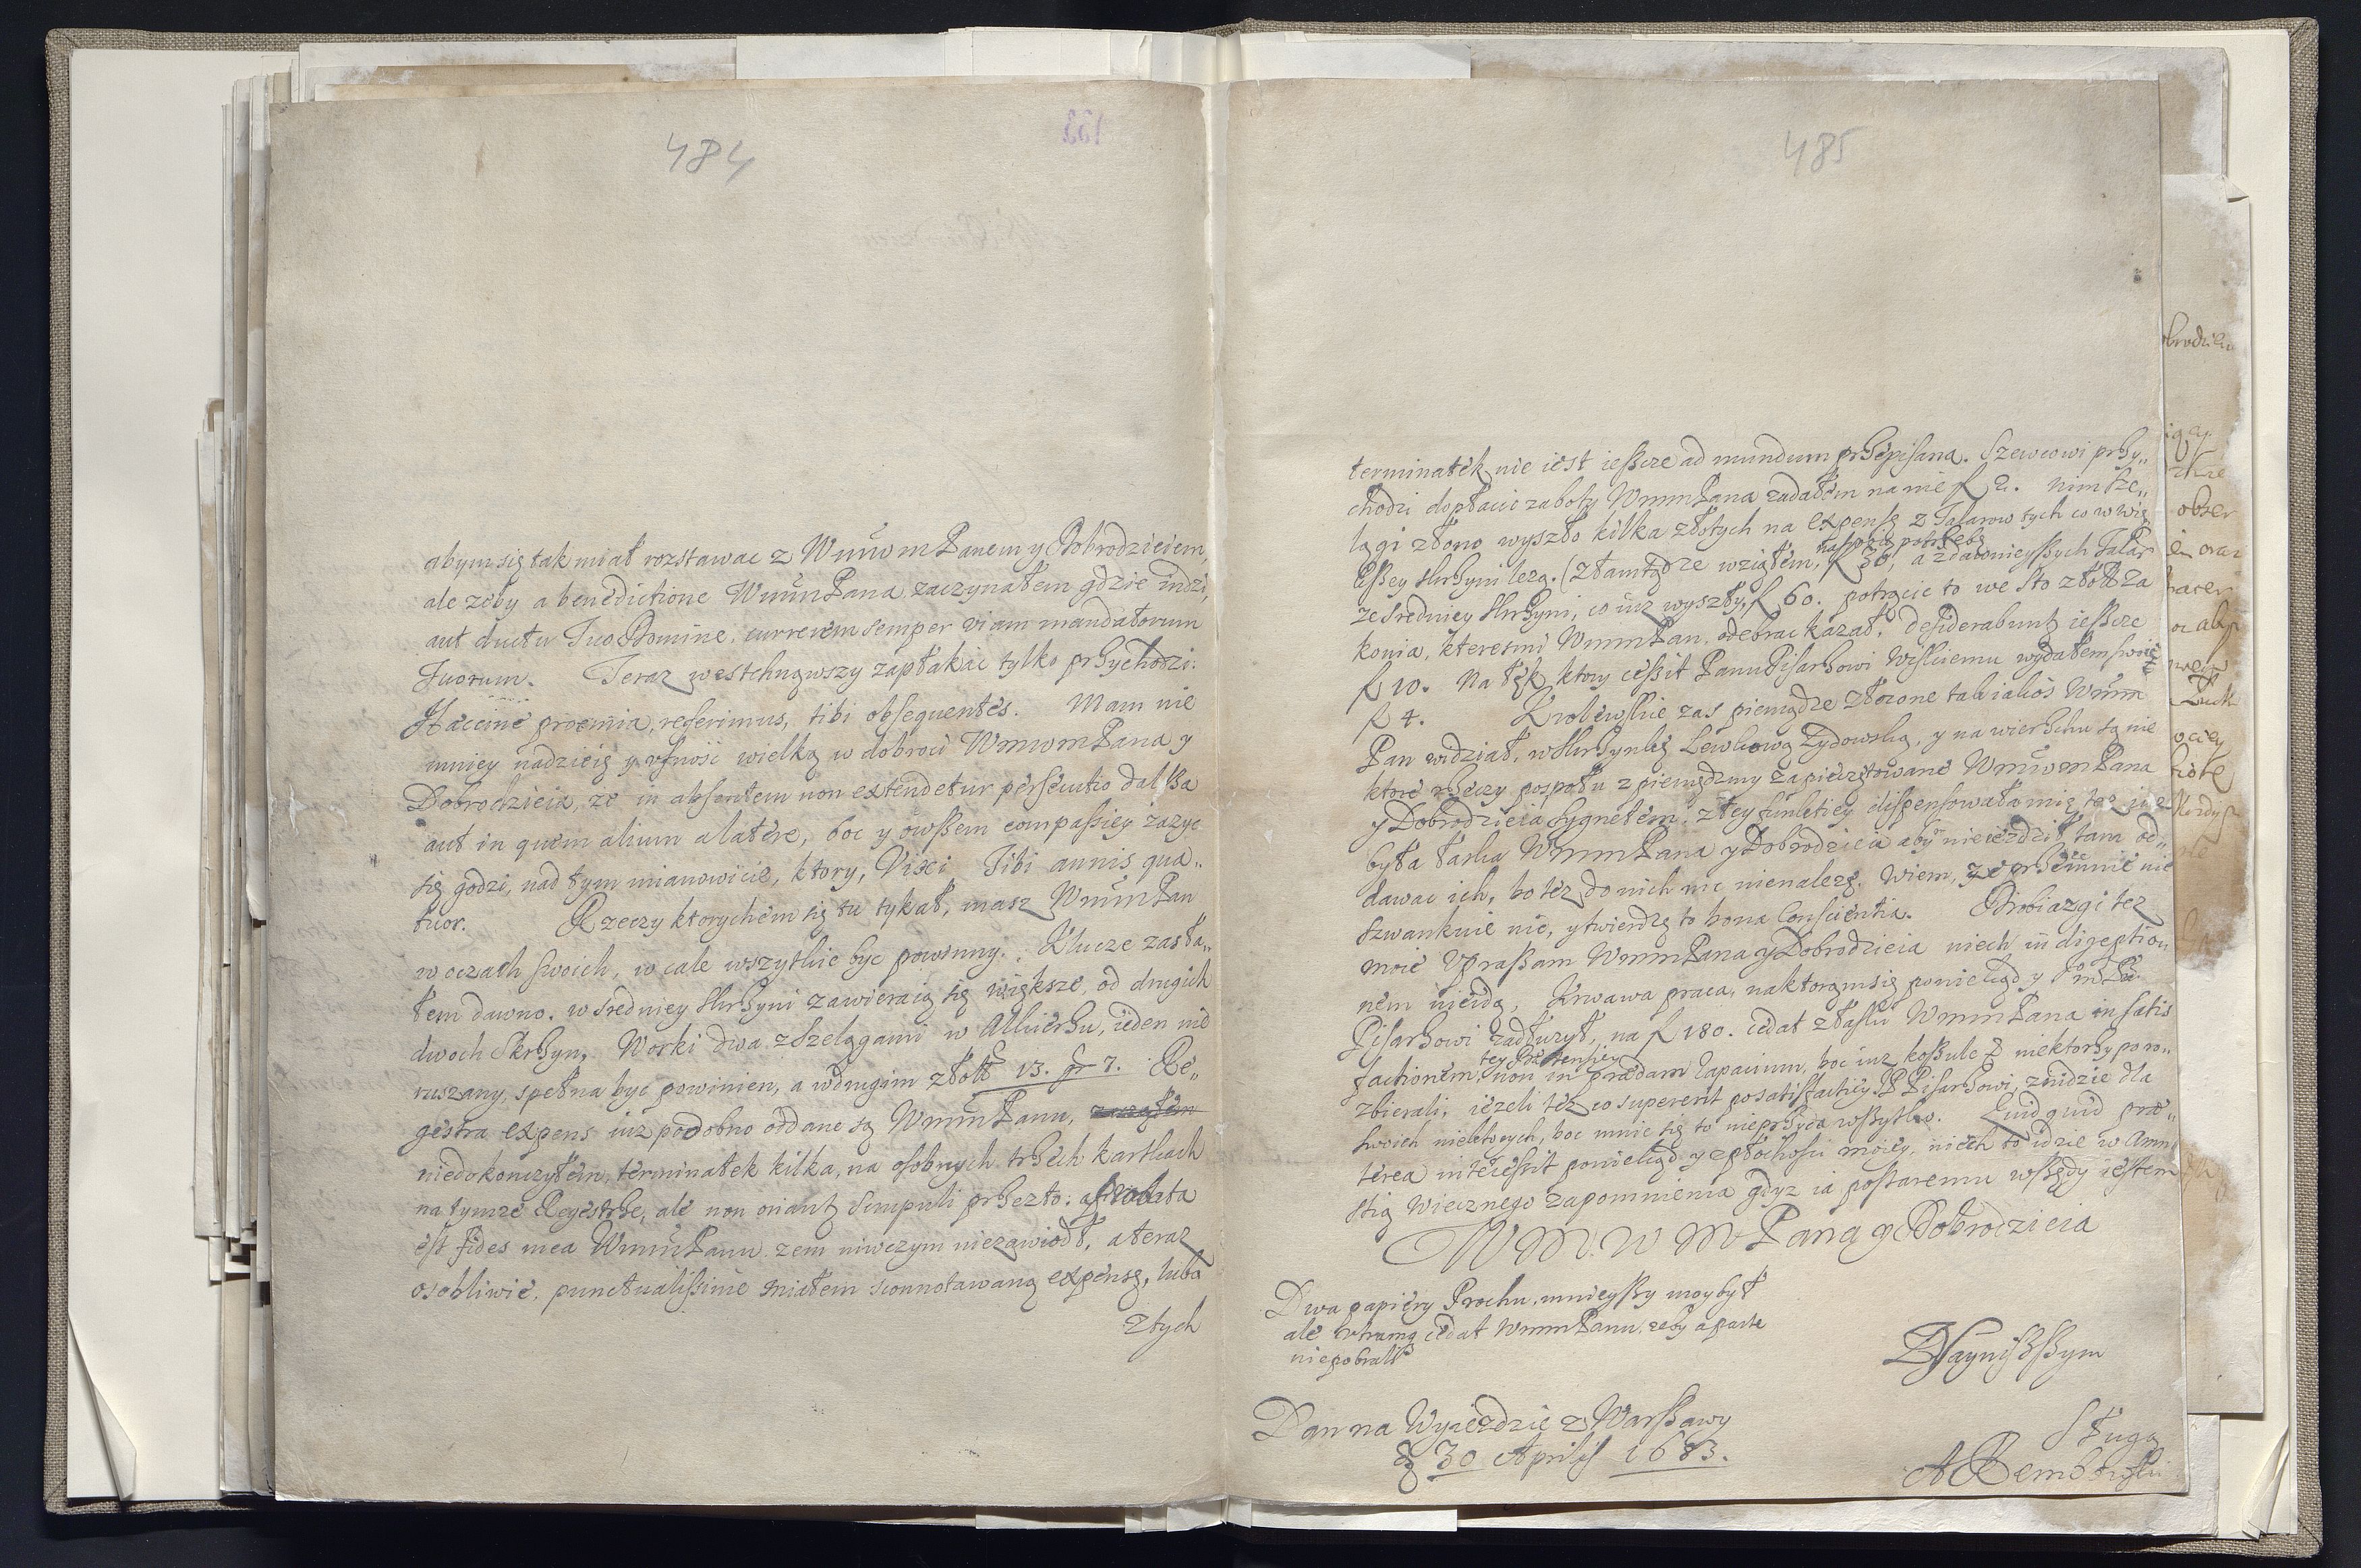 484
abym się tak miał rozstawac z Wmwm Panem y Dobrodzieiem,
ale zeby a benedictione WmmPana zaczynałem gdzie indzi,
aut ductu Tuo Domine, currerem semper viam mandatorum
Tuorum. Teraz westchnąwszy zapłakac tylko prhychodzi.
Hæccine præmia, referimus, tibi obsequentes. Mam nie
mniey nadzieię y ufnosc wielką w dobroci WmwmPana y
Dobrodzieia, ze in absentem non extendetur persecutio dalßa
aut in quem alium a latere, boc y owßem compaßiey zazyc
się godzi, nad tym mianowicie, ktory, Vixi Tibi annis qua-
tuor. Rzeczy ktorychem się tu tykał, masz WmmPan
w oczach swoich, w cale wszytkie byc powinny. Klucze zasta,,
łem dawno. w sredniey skrhyni zawieraią się większe, od drugich
dwoch Skrhyn, Worki dwa z Szelągami w Alkierhu, ieden nie
ruszany, spełna byc powinien, a w drugim złott 13. gr 7. Re,,
gestra expens iuz podobno oddane są WmmPanu,
niedokonczyłem, terminatek kilka, na osobnych trhech kartkach
na tymze Regestrhe, ale non oriantz scrupuli prhezto:
est fides mea WmmPanu zem niwczym niezawiodł, a teraz
osobliwie, punctualissime miałem sconnotawaną expensę, luba
z tych
485
terminatek nie iest ießcze ad mundum prhepisana. Szewcowi prhy,,
chodzi dopłacic za boty WmmPana zadałem na nie f 2. nim Sze,,
lągi złono wyszło kilka złotych na expensę z Talarow tych co w wię
kßey skrhyni lezą. (Ztamtądze wziąłem, na swoię potrhebę f 30, a z dawnieyßych Talar
ze sredniey skrhyni, co iuz wyszły, f 60. potrącic to we sto złott za
konia, kteremi WmmPan, odebrac kazał, desiderabuntz ießcze
f 10. Na tęk ktory ceßit Panu Pisarhowi Wislickiemu wydałem swoie
f 4. Krolewskie zas pieniądze złozone tak iakos Wmm
Pan widział, w skrhynkę Lewkową Zydowską, y na wierhchu są nie
ktore rheczy pospołu z pieniądzmy zapieczętowane WmwmPana
y Dobrodzieia sygnetem. z tey funkciey dispensowała mię tez iuz
była łaska WmmPana y Dobrodzieia abym nieiezdził tam od,,
dawac ich, bo tez do nich nic nienalezę. Wiem, ze prhezemnie nie
szwankuie nic, y twierdzę to bona Conscientia. Drobiazgi tez
moie Upraßam WmmPana y Dobrodzieia niech in digeption,,
nem nieidą, Krwawa praca, na ktorąmsię poniekąd y
Pisarhowi zadłuzył, na f 180. cedat z łaski WmmPana in satis
factionem, tey prætensiey non in prædam rapacium, boc iuz koßule niektorhy poro,,
zbierali, iezeli tez co superent po satisfactiey P. Pisarhowi, znidzie dla
swoich nieletnych, boc mnie się to nieprhyda wßytko. Quid quid præ,,
terea intercessit poniekąd y z płochosci moiey, niech to idzie w Amne
stią wiecznego zapomnienia gdyz ia postaremu wßędy iestem
W M W M Pana y Dobrodzieia
Dwa papiery Prochu, mnieyßy moy był
ale utrumq cedat WmmPanu, zeby aparte
niepobrali
Nayniszßym
Dan na Wyiezdzie z Warßawy
d 30 Aprilis 1683.
Sługa